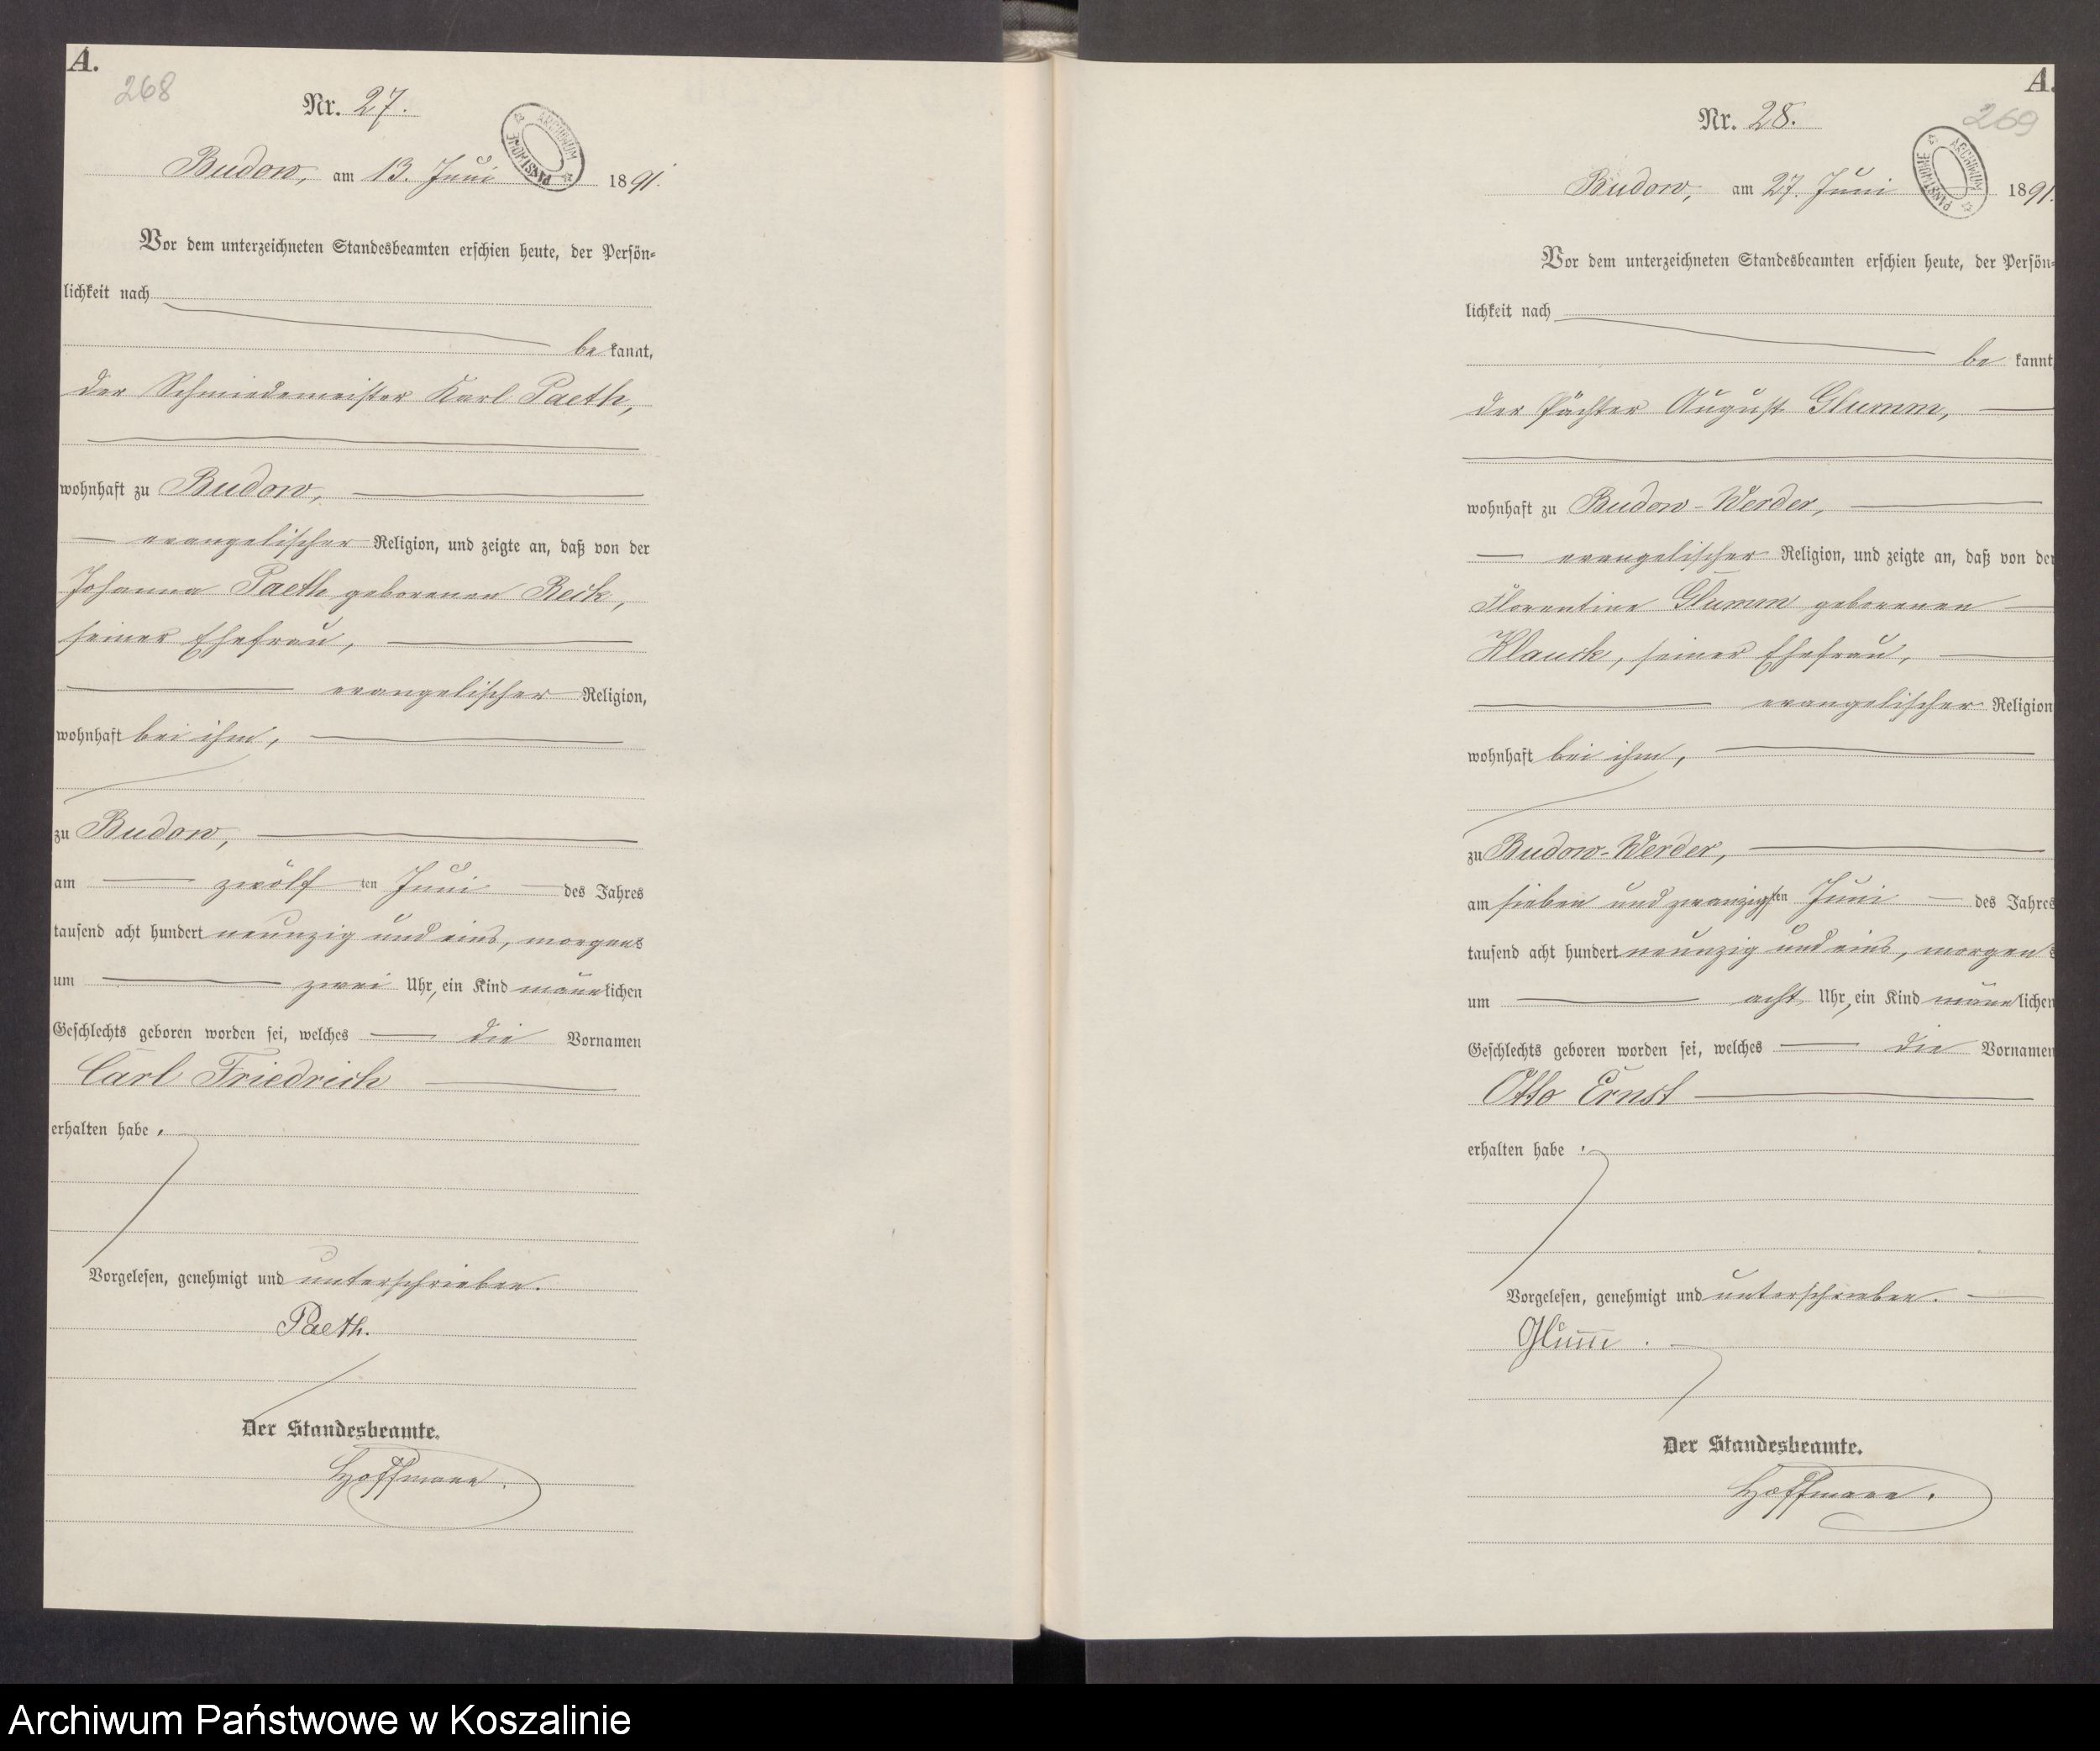 A.
268
Nr. 27.
ARCHIWUM PAŃSTWOWE
Budow, am 13. Juni 1891.
Vor dem unterzeichneten Standesbeamten erschien heute, der Persön-
lichkeit nach
bekannt,
der Schmiedemeister Karl Paeth,
wohnhaft zu Budow,
evangelischer Religion, und zeigte an, daß von der
Johanna Paeth geborenen Reck,
seiner Ehefrau,
evangelischer Religion,
wohnhaft bei ihm,
zu Budow,
am zwölften Juni des Jahres
tausend acht hundert neunzig und eins, morgens
um zwei Uhr, ein Kind männlichen
Geschlechts geboren worden sei, welches die Vornamen
Carl Friedrich
erhalten habe.
Vorgelesen, genehmigt und unterschrieben.
Paeth.
Der Standesbeamte.
Hoffmann.
A.
269
Nr. 28.
ARCHIWUM PAŃSTWOWE
Budow, am 27. Juni 1891.
Vor dem unterzeichneten Standesbeamten erschien heute, der Persön-
lichkeit nach
bekannt
der Pächter August Glumm,
wohnhaft zu Budow-Werder,
evangelischer Religion, und zeigte an, daß von der
Florentine Glumm geborenen
Klauck, seiner Ehefrau,
evangelischer Religion
wohnhaft bei ihm,
zu Budow-Werder,
am sieben und zwanzigsten Juni des Jahres
tausend acht hundert neunzig und eins, morgens
um acht Uhr, ein Kind männlichen
Geschlechts geboren worden sei, welches die Vornamen
Otto Ernst
erhalten habe.
Vorgelesen, genehmigt und unterschrieben.
Glum̅.
Der Standesbeamte.
Hoffmann.
Archiwum Państwowe w Koszalinie